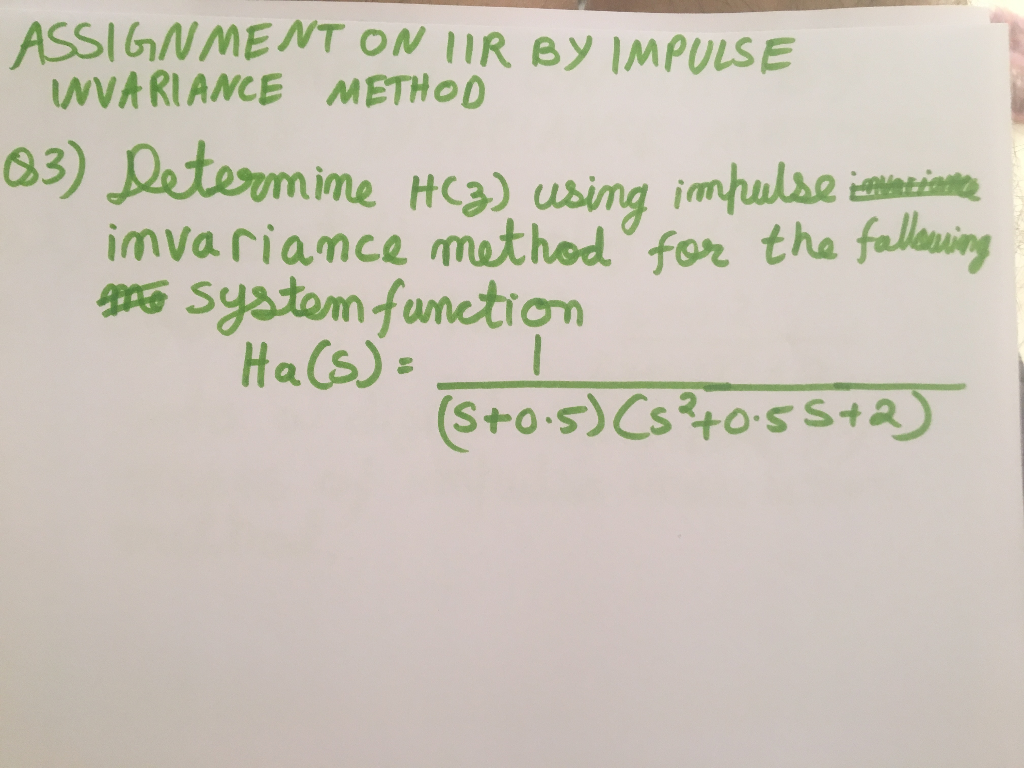 ASSIGNMENT ON IIR BY IMPULSE
INVARIANCE METHOD
Q3) Determine H(z) using impulse
invariance method for the following
system function
Ha(S) = 1
(S+0.5)(S²+0.5S+2)